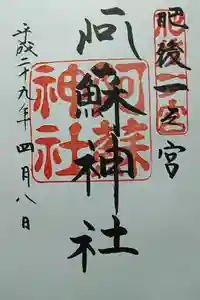 肥後一之宮
阿蘇神社
平成二十九年四月八日
阿蘇
神社